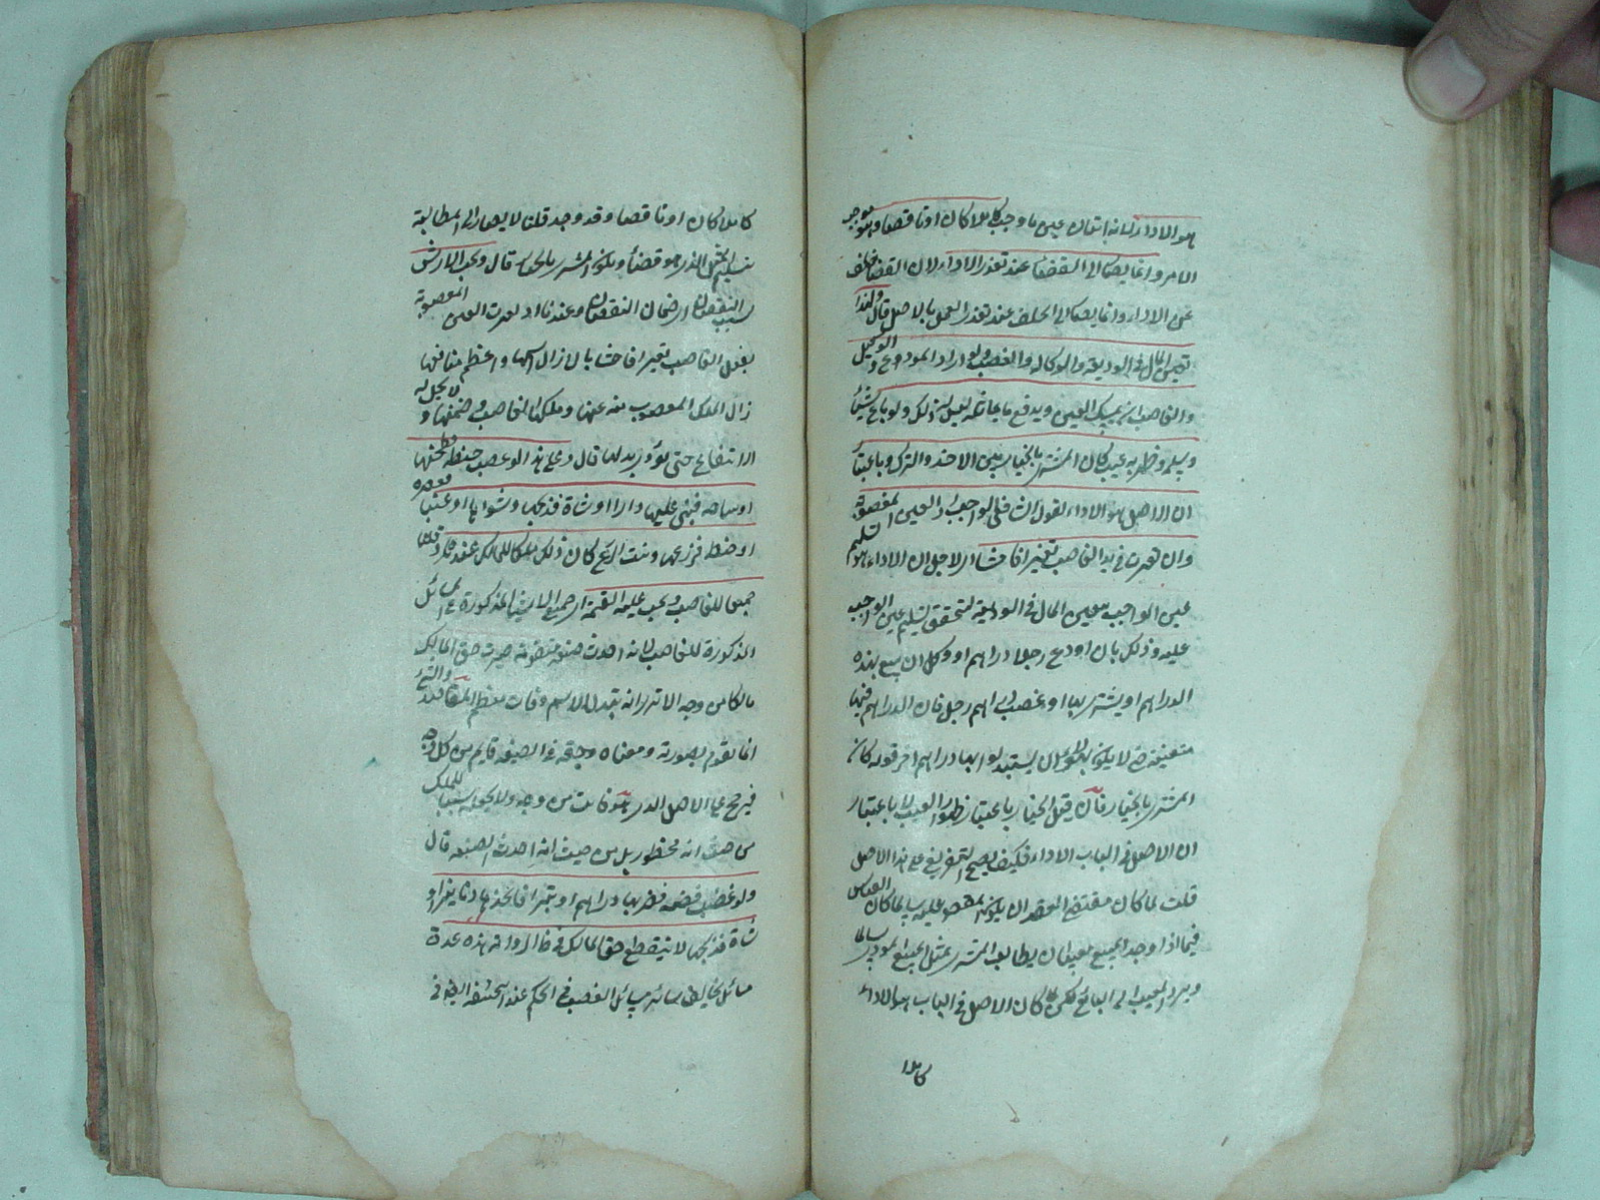 هو الاداء لانه اتيان عين ما وجب كاملا كان او ناقصا وهو موجب
الامر وانما يصار الى القضاء عند تعذر الاداء لان القضاء خلف
عن الاداء وانما يصار الى الخلف عند تعذر العمل بالاصل قال ولهذا
يتعين المال فى الوديعة والوكالة والغصب ولو اراد المودع والوكيل
والغاصب ان يمسك العين ويدفع ما يماثله ليس له ذلك ولو باع شيئا
وسلمه وظهر به عيب كان المشترى بالخيار بين الاخذ والترك وباعتبار
ان الاصل هو الاداء يقول الشافعى الواجب رد العين المغصوبة
وان تغيرت فى يد الغاصب تغيرا فاحشا اى لاجل ان الاداء هو تسليم
عين الواجب يتعين المال فى الوديعة لتحقق تسليم عين الواجب
عليه وذلك بان اودع رجلا دراهم او وكل ان يبيع بهذه
الدراهم او يشترى بها او غصب دراهم رجل فان الدراهم فيها
متعينة حتى لا يكون لهؤلاء ان يستبدلوا بها دراهم اخر قوله كان
المشترى بالخيار فان قيل الخيار باعتبار ظهور العيب لا باعتبار
ان الاصل فى الباب الاداء فكيف يصح التفريع على هذا الاصل
قلت لما كان مقتضى العقد ان يكون المعقود عليه سالما كان القياس
فيما اذا وجد المبيع معيبا ان يطالب المشترى بمثل المبيع المودى سالما
ويرد المعيب الى البائع لكن لما كان الاصل فى الباب هو الاداء
كاملا
كاملا كان او ناقصا وقد وجد قلنا لا يصار الى المطالبة
بتسليم المثل الذى هو قضاء ويكون المشترى بالخيار قال ويجب الارش
بسبب النقصان اى ضمان النقصان وعندنا اذا تغيرت العين المغصوبة
بفعل الغاصب تغيرا فاحشا بان زال اسمها واعظم منافعها
زال الملك المغصوب منه عنها وملكها الغاصب وضمنها ولا يحل له
الانتفاع حتى يؤدى بدلها قال وعلى هذا لو غصب حنطة فطحنها
او ساجة فبنى عليها دارا او شاة فذبحها وشواها او عنبا فعصره
او حنطة فزرعها ونبت الزرع كان ذلك ملكا للمالك عنده وقلنا
جميعها للغاصب ويجب عليه القيمة اى جميع الاشياء المذكورة فى المسائل
المذكورة للغاصب لانه احدث صنعة متقومة صيرت حق المالك
هالكا من وجه الا ترى انه تبدل الاسم وفات معظم المقاصد والشئ
انما تقوم بصورته ومعناه وحقه فى الصنعة قايم من كل وجه
فيرجح على الاصل الذى هو فائت من وجه ولا يجعله سببا للملك
من حيث انه محظور بل من حيث انه احدث الصنعة قال
ولو غصب فضة فضربها دراهم او تبرا فاتخذها دنانير او
شاة فذبحها لا ينقطع حق المالك فى ظاهر الرواية هذه عدة
مسائل يخالف سائر مسائل الغصب فى الحكم عند ابى حنيفة